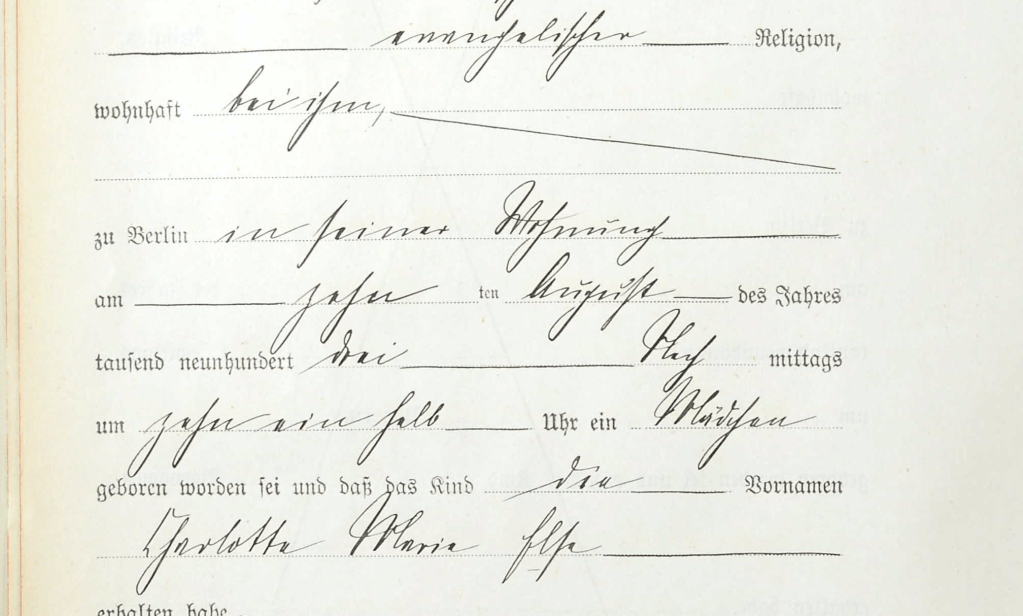 evangelischer Religion,
wohnhaft bei ihm,
zu Berlin in seiner Wohnung
am zehn ten August des Jahres
tausend neunhundert drei Nach mittags
um zehn ein halb Uhr ein Mädchen
geboren worden sei und daß das Kind die Vornamen
Charlotte Marie Else
erhalten habe.